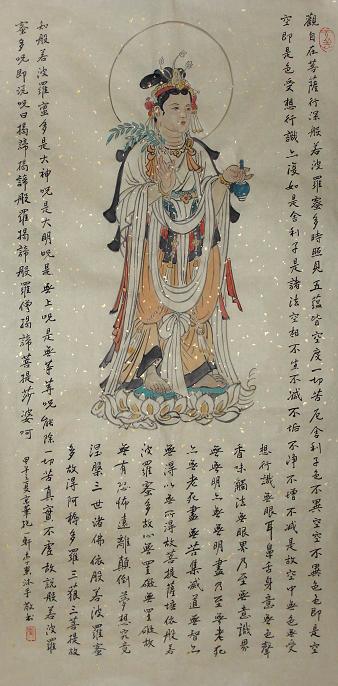 觀自在菩薩行深般若波羅蜜多時照見五蘊皆空度一切苦厄舍利子色不異空空不異色色即是空
空即是色受想行識亦復如是舍利子是諸法空相不生不滅不垢不淨不增不減是故空中無色無受
想行識無眼耳鼻舌身意無色聲
香味觸法無眼界乃至無意識界
無無明亦無無明盡乃至無老死
亦無老死盡無苦集滅道無智亦
無得以無所得故菩提薩埵依般若
波羅蜜多故心無罣礙無罣礙故
無有恐怖遠離顛倒夢想究竟
涅槃三世諸佛依般若波羅蜜
多故得阿耨多羅三藐三菩提故
知般若波羅蜜多是大神呪是大明呪是無上呪是無等等呪能除一切苦真實不虛故說般若波羅
蜜多呪即說呪曰揭諦揭諦般羅揭諦般羅僧揭諦菩提莎婆呵
甲午之夏軒沐手敬書